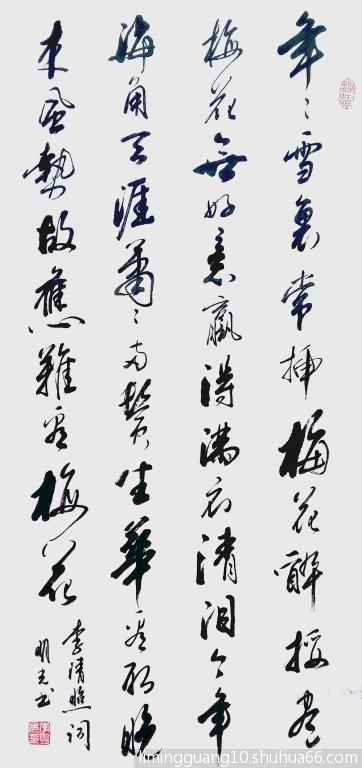 年〻雪裏常插梅花醉挼尽
梅花無好意赢得满衣清泪今年
海角天涯蕭〻两鬓生華看取晚
来風勢故應難看梅花
李清照词
明光书
limingguang10.shuhua66.com